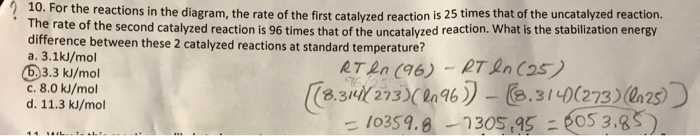 ? 10. For the reactions in the diagram, the rate of the first catalyzed reaction is 25 times that of the uncatalyzed reaction.
The rate of the second catalyzed reaction is 96 times that of the uncatalyzed reaction. What is the stabilization energy
difference between these 2 catalyzed reactions at standard temperature?
a. 3.1kJ/mol
b. 3.3 kJ/mol
c. 8.0 kJ/mol
d. 11.3 kJ/mol
RT ln (96) - RT ln (25)
[(8.314)(273)(ln 96)] - [(8.314)(273)(ln 25)]
= 10359.8 - 7305.95 = 3053.85